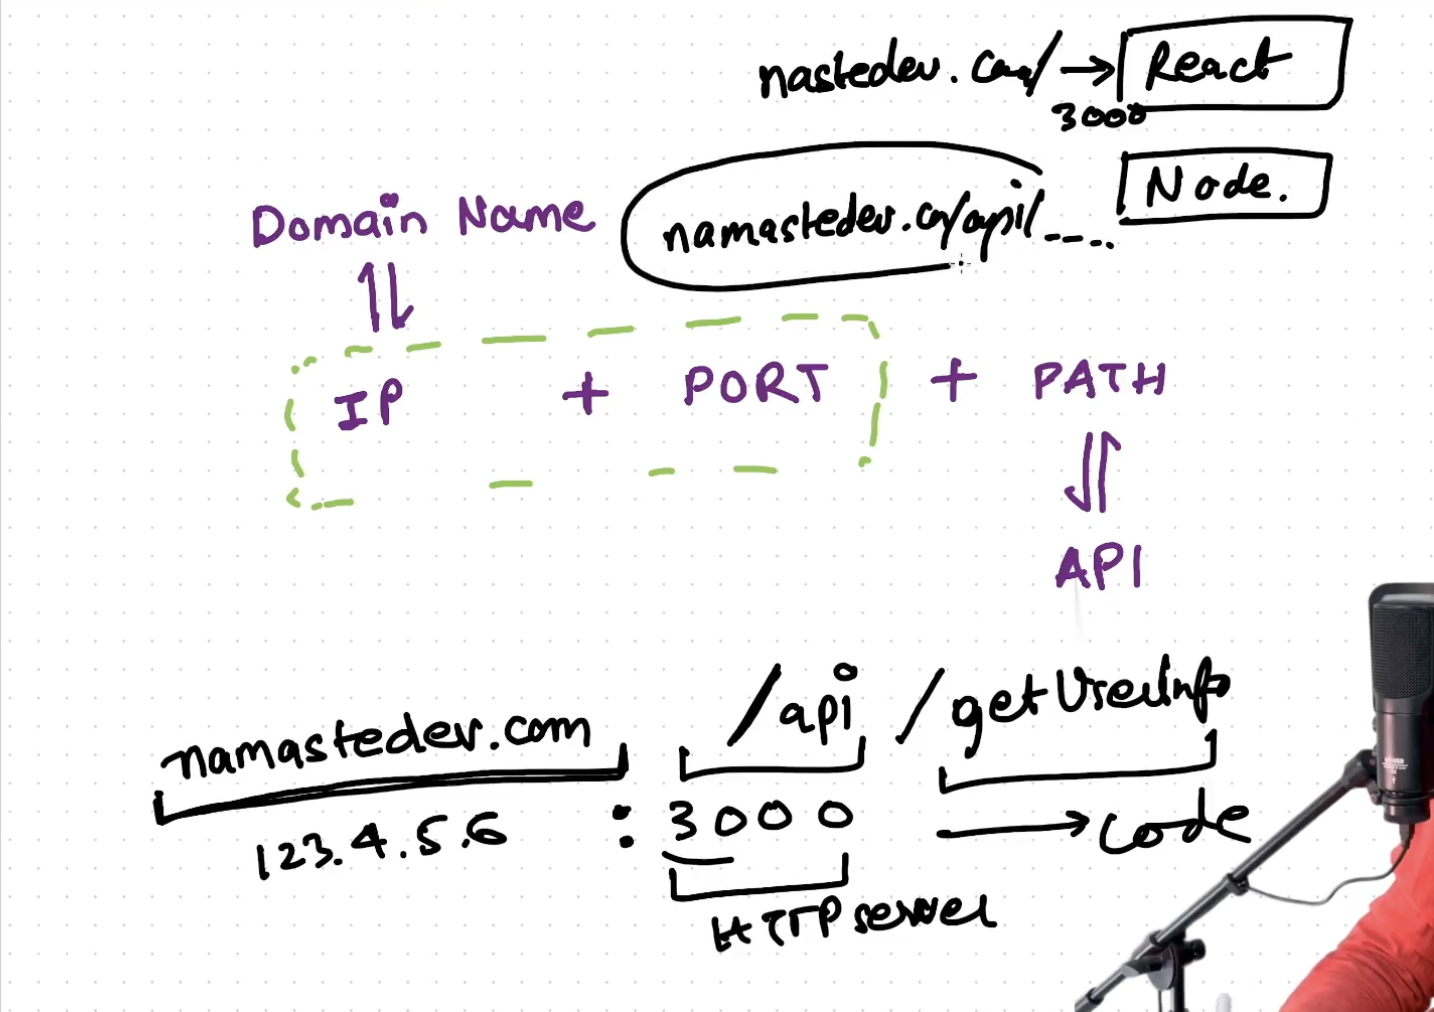 nastedev.com/ → React
3000
namastedev.com/api/----.. Node.
Domain Name
IP + PORT + PATH
API
namastedev.com /api /getUserInfo
123.4.5.6 : 3000 → code
HTTP server